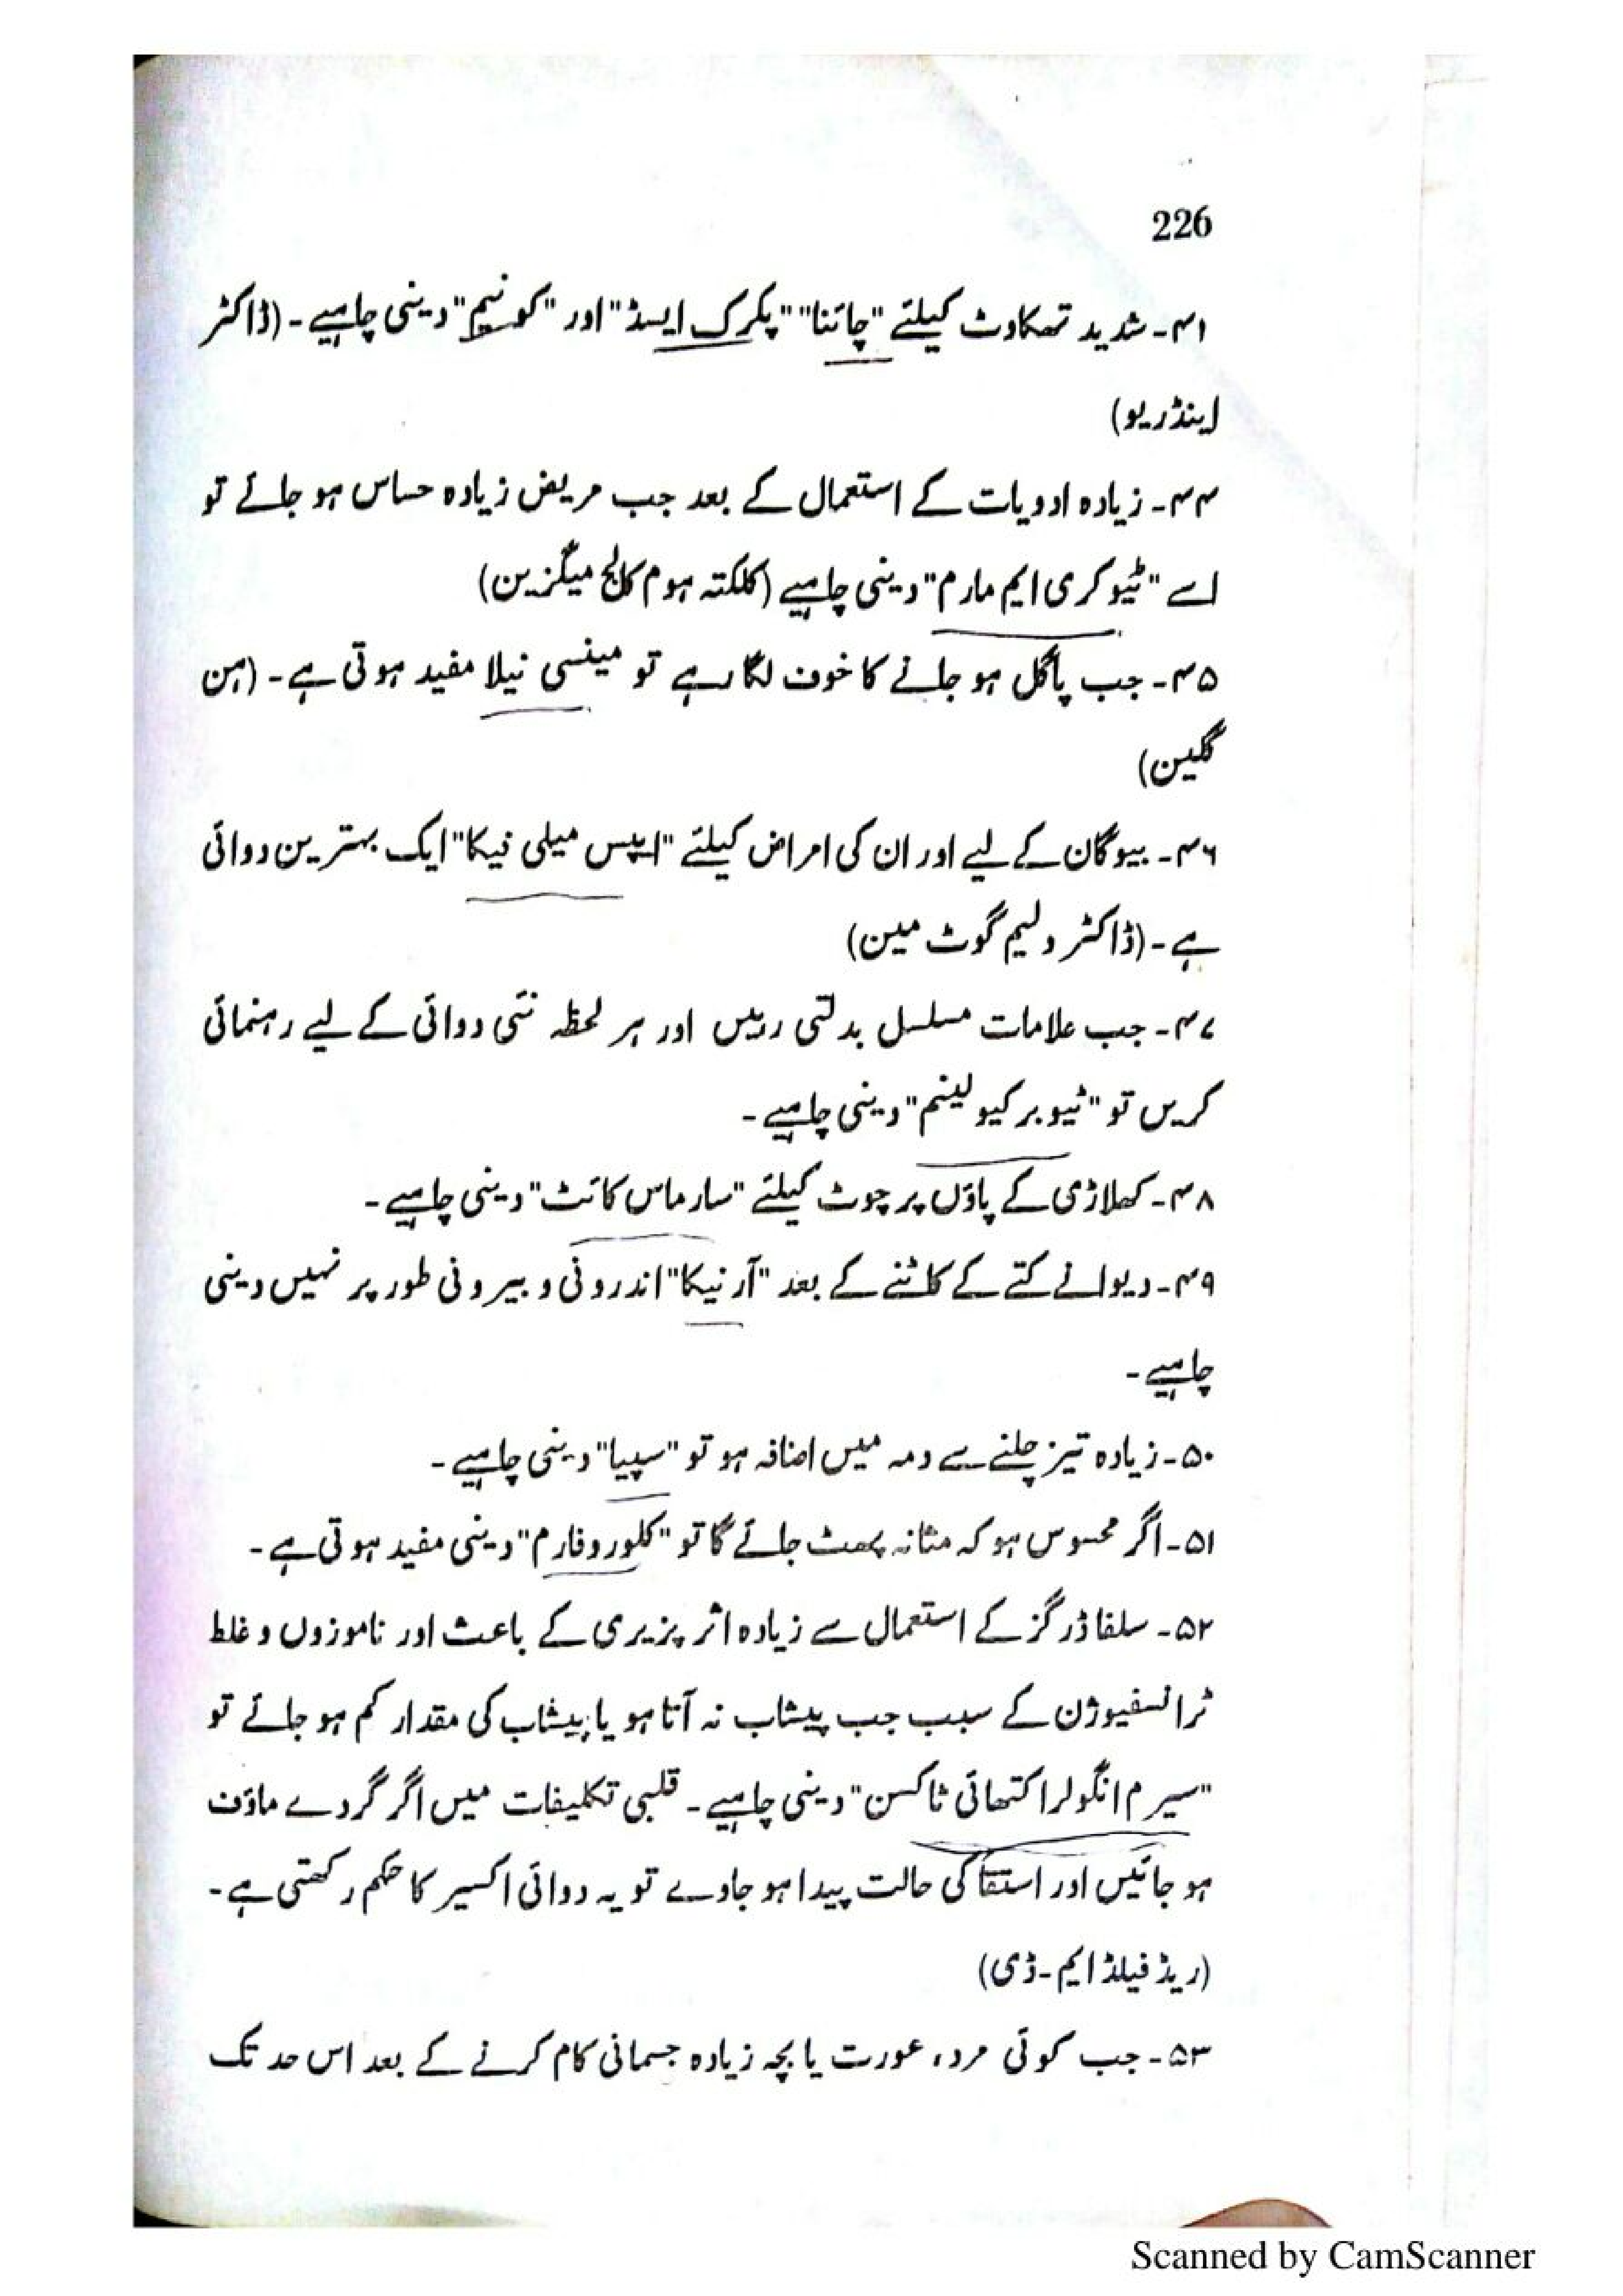 226
۴۱۔ شدید تھکاوٹ کیلئے "چائنا" "پکرک ایسڈ" اور "کونیم" دینی چاہیے۔ (ڈاکٹر
اینڈریو)
۴۴۔ زیادہ ادویات کے استعمال کے بعد جب مریض زیادہ حساس ہو جائے تو
اسے "ٹیوکری ایم مارم" دینی چاہیے (کلکتہ ہوم کالج میگزین)
۴۵۔ جب پاگل ہو جانے کا خوف لگا رہے تو مینسی نیلا مفید ہوتی ہے۔ (ہن
گلین)
۴۶۔ بیوگان کے لیے اور ان کی امراض کیلئے "ایپس میلی فیکا" ایک بہترین دوائی
ہے۔ (ڈاکٹر ولیم گوٹ مین)
۴۷۔ جب علامات مسلسل بدلتی رہیں اور ہر لحظہ نئی دوائی کے لیے رہنمائی
کریں تو "ٹیوبرکیولینم" دینی چاہیے۔
۴۸۔ کھلاڑی کے پاؤں پر چوٹ کیلئے "سارماس کائٹ" دینی چاہیے۔
۴۹۔ دیوانے کتے کے کاٹنے کے بعد "آرنیکا" اندرونی و بیرونی طور پر نہیں دینی
چاہیے۔
۵۰۔ زیادہ تیز چلنے سے دمہ میں اضافہ ہو تو "سیپیا" دینی چاہیے۔
۵۱۔ اگر محسوس ہو کہ مثانہ پھٹ جائے گا تو "کلوروفارم" دینی مفید ہوتی ہے۔
۵۲۔ سلفا ڈرگز کے استعمال سے زیادہ اثر پزیری کے باعث اور ناموزوں و غلط
ٹرانسفیوژن کے سبب جب پیشاب نہ آتا ہو یا پیشاب کی مقدار کم ہو جائے تو
"سیرم انگولر اکتھائی ٹاکسن" دینی چاہیے۔ قلبی تکلیفات میں اگر گردے ماؤف
ہو جائیں اور استقا کی حالت پیدا ہو جاوے تو یہ دوائی اکسیر کا حکم رکھتی ہے۔
(ریڈ فیلڈ ایم۔ڈی)
۵۳۔ جب کوئی مرد، عورت یا بچہ زیادہ جسمانی کام کرنے کے بعد اس حد تک
Scanned by CamScanner